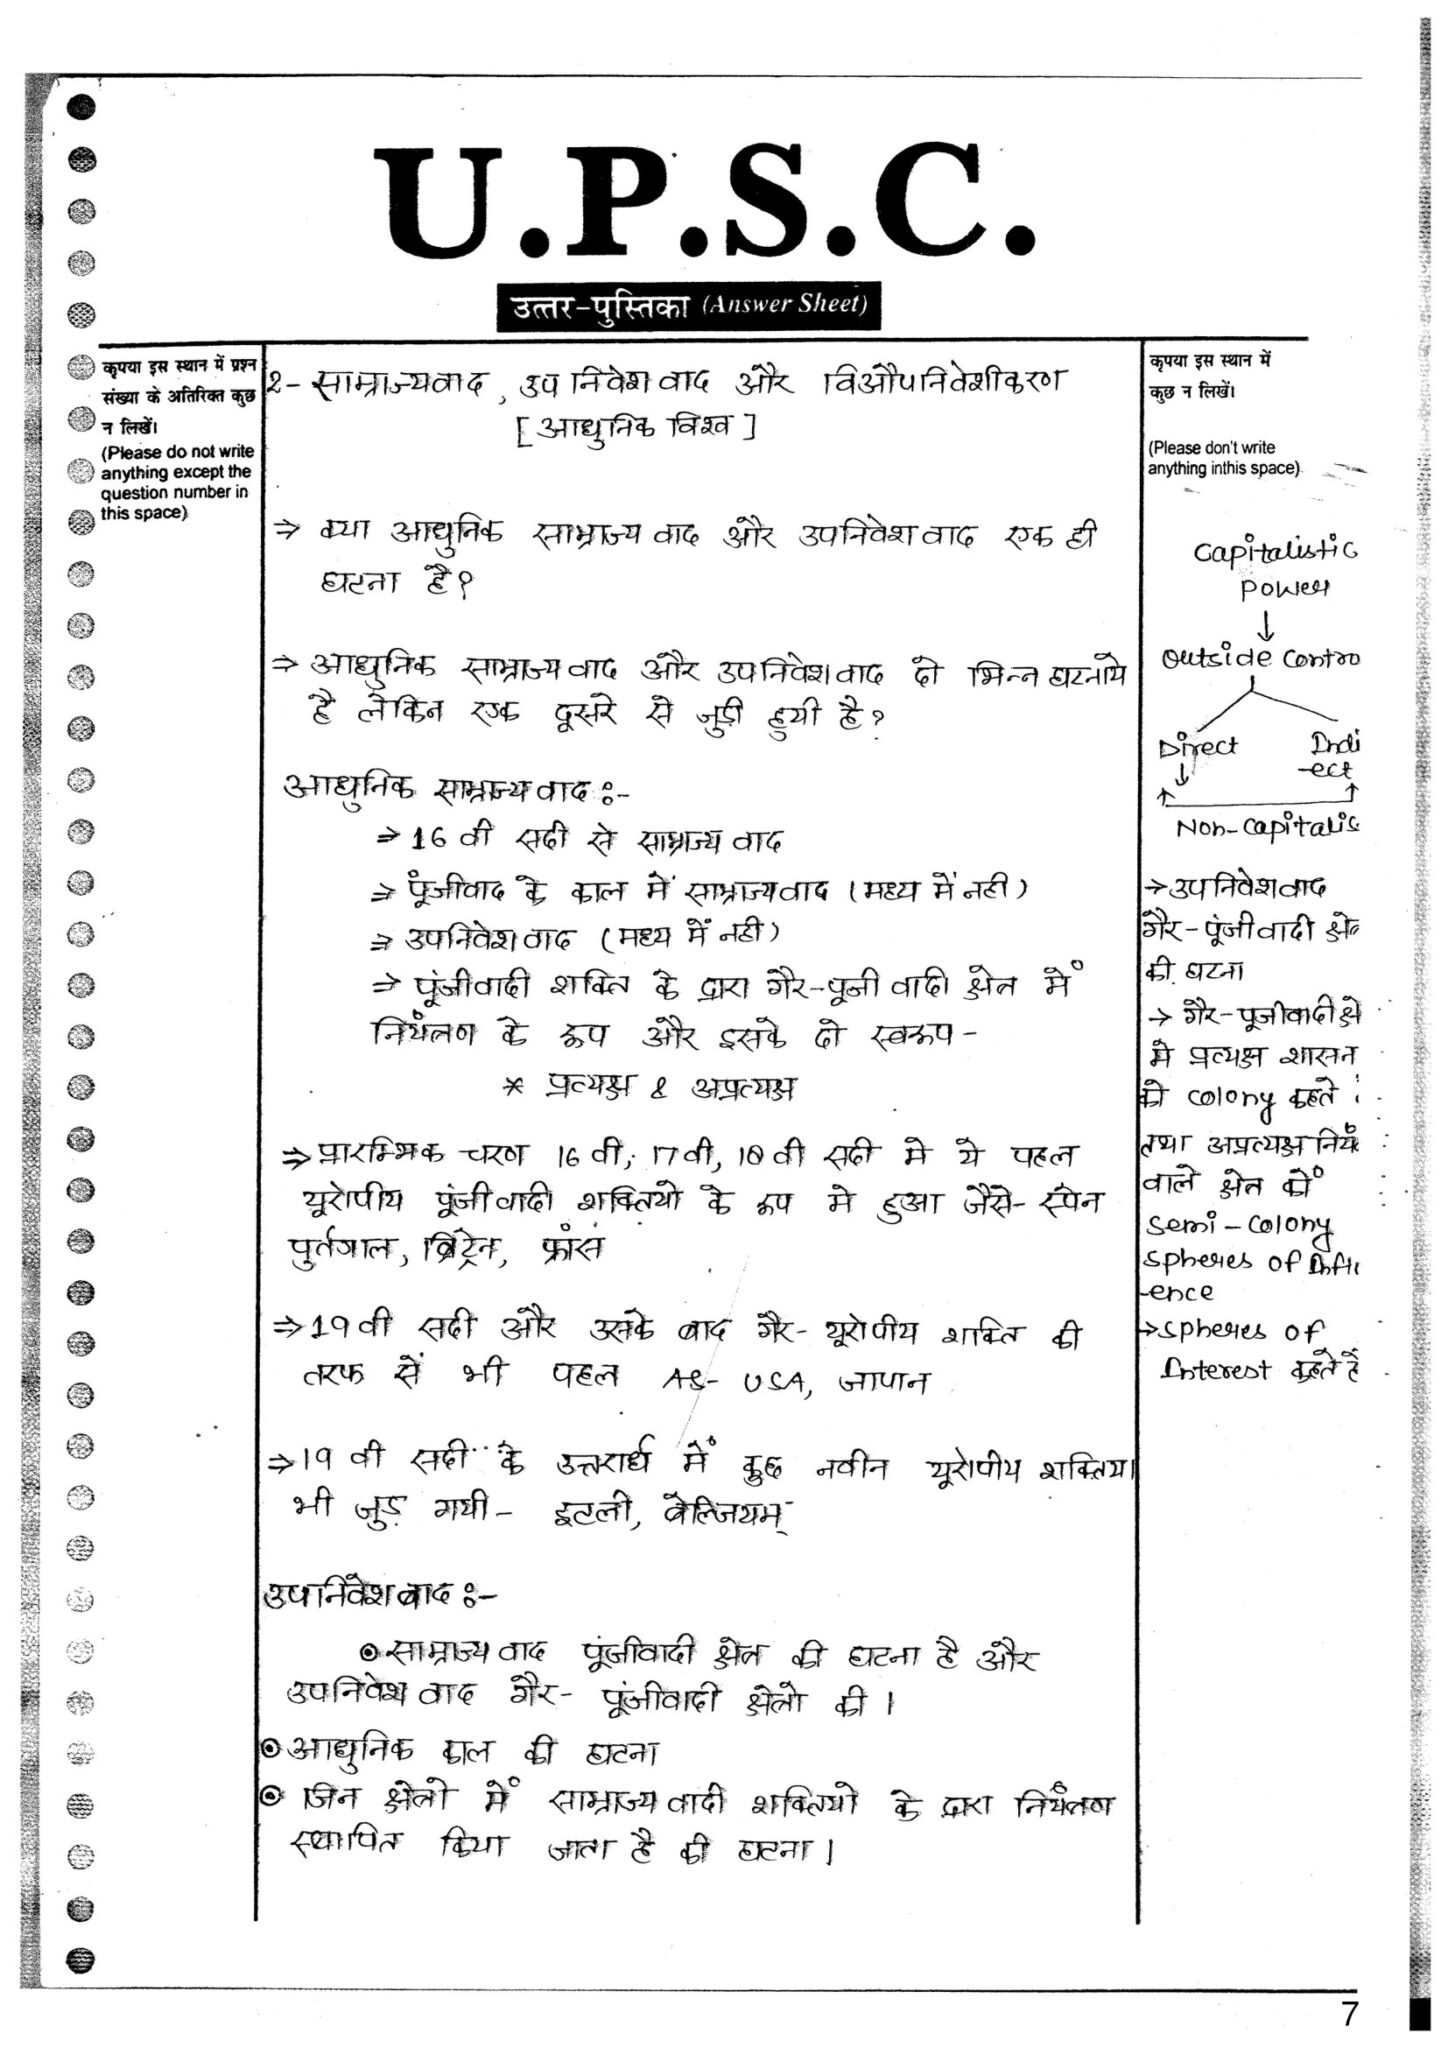 U.P.S.C.
उत्तर-पुस्तिका (Answer Sheet)
कृपया इस स्थान में प्रश्न
संख्या के अतिरिक्त कुछ
न लिखें।
(Please do not write
anything except the
question number in
this space)
2- साम्राज्यवाद, उपनिवेशवाद और विऔपनिवेशीकरण
[आधुनिक विश्व]
⇒ क्या आधुनिक साम्राज्यवाद और उपनिवेशवाद एक ही
घटना है?
⇒ आधुनिक साम्राज्यवाद और उपनिवेशवाद दो भिन्न घटनाये
है लेकिन एक दूसरे से जुड़ी हुयी है?
आधुनिक साम्राज्यवाद :-
⇒ 16 वी सदी से साम्राज्यवाद
⇒ पूंजीवाद के काल में साम्राज्यवाद (मध्य में नही)
⇒ उपनिवेशवाद (मध्य में नही)
⇒ पूंजीवादी शक्ति के द्वारा गैर-पूंजीवादी क्षेत्र में
नियंत्रण के रूप और इसके दो स्वरूप -
* प्रत्यक्ष & अप्रत्यक्ष
⇒ प्रारम्भिक चरण 16 वी, 17 वी, 18 वी सदी मे ये पहल
यूरोपीय पूंजीवादी शक्तियो के रूप मे हुआ जैसे- स्पेन
पुर्तगाल, ब्रिट्रेन, फ्रांस
⇒ 19 वी सदी और उसके बाद गैर-यूरोपीय शक्ति की
तरफ सें भी पहल As- USA, जापान
⇒ 19 वी सदी के उत्तरार्ध में कुछ नवीन यूरोपीय शक्तिया
भी जुड़ गयी - इटली, बेल्जियम्
उपनिवेशवाद :-
⊙ साम्राज्यवाद पूंजीवादी क्षेत्र की घटना है और
उपनिवेशवाद गैर- पूंजीवादी क्षेत्रो की।
⊙ आधुनिक काल की घटना
⊙ जिन क्षेत्रो में साम्राज्यवादी शक्तियो के द्वारा नियंत्रण
स्थापित किया जाता है की घटना।
कृपया इस स्थान में
कुछ न लिखें।
(Please don't write
anything inthis space)
Capitalistic
Power
↓
Outside Contro
Direct Indi
-ect
Non-Capitalis
→ उपनिवेशवाद
गैर-पूंजीवादी क्षे
की घटना
→ गैर-पूंजीवादी क्षे
मे प्रत्यक्ष शासन
को Colony कहते
तथा अप्रत्यक्ष नियं
वाले क्षेत्र कों
Semi-Colony
Spheres of Influ
-ence
→ Spheres of
Interest कहते हैं
7